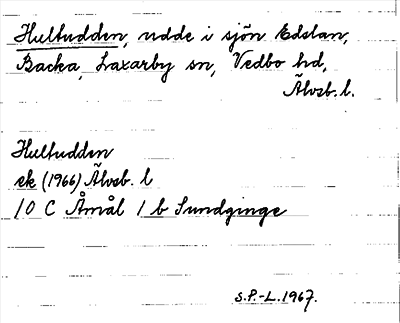 Hultudden, udde i sjön Edslan,
Backa, Laxarby sn, Vedbo hd,
Älvsb. l.
Hultudden
ek (1966) Älvsb. l
10 C Åmål 1 b Sundginge
S.P.-L. 1967.